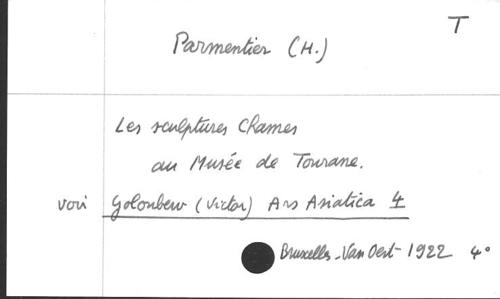 T
Parmentier (H.)
Les sculptures Chames
au Musée de Tourane.
voir Goloubew (Victor) Ars Asiatica 4
Bruxelles - Van Oest - 1922 4°